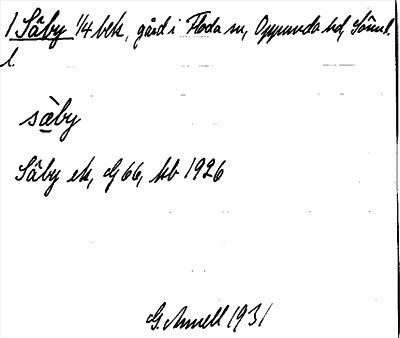 1 Säby 1/4 bek, gård i Floda sn, Oppunda hd, Söml.
l.
sàby
Säby ek, G 66, kb 1926
G. Annell 1931